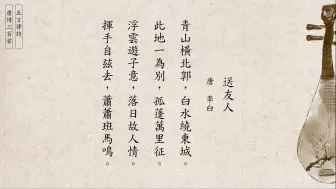 送友人
唐　李白
青山橫北郭，白水繞東城。
此地一為別，孤蓬萬里征。
浮雲遊子意，落日故人情。
揮手自茲去，蕭蕭班馬鳴。
五言律詩
唐詩三百首